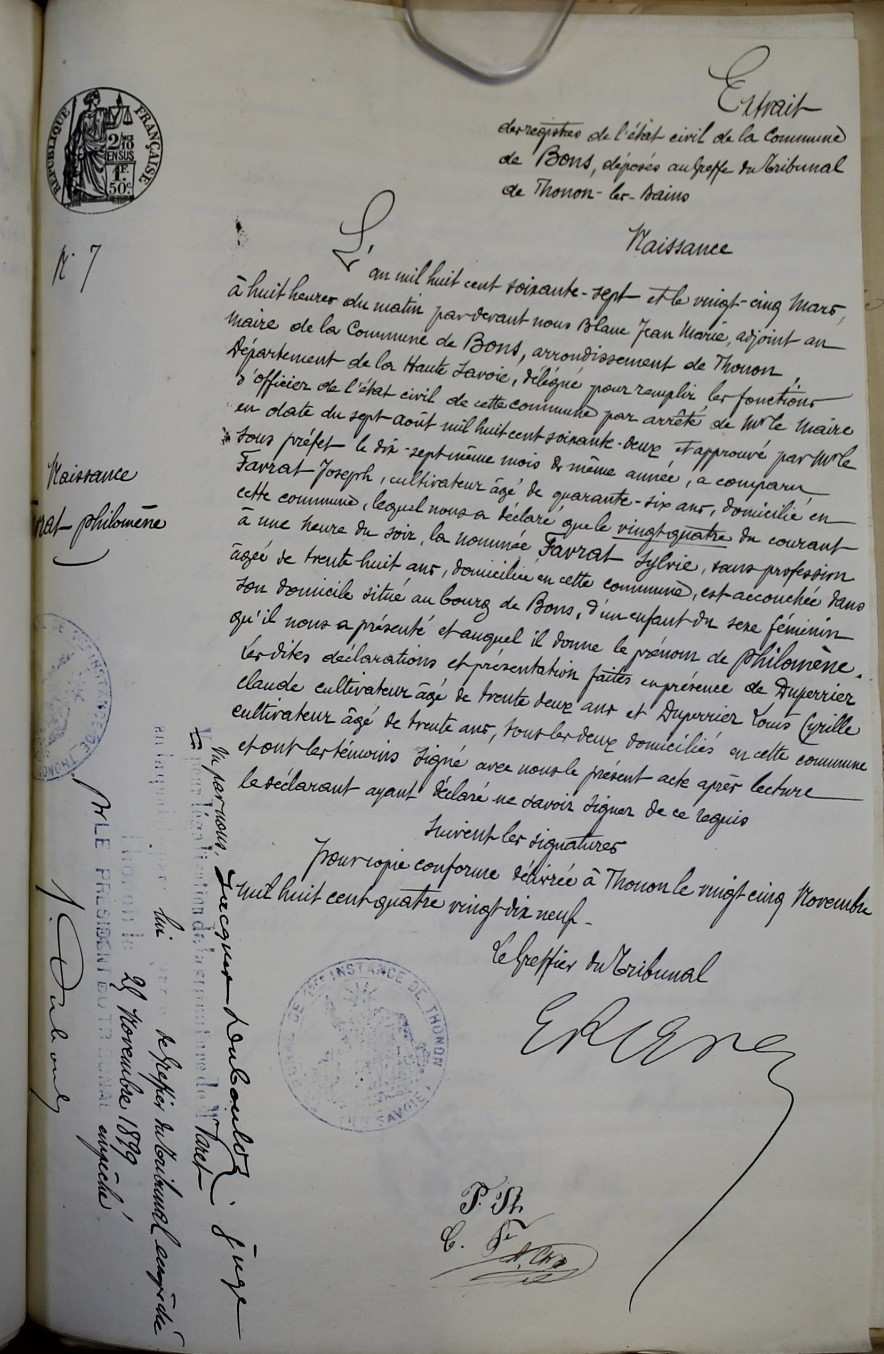 RÉPUBLIQUE FRANÇAISE
2/10
EN SUS
1F.
50c.
Extrait
des registres de l'état civil de la Commune
de Bons, déposés au Greffe du Tribunal
de Thonon-les-Bains
N° 7
Naissance
L'an mil huit cent soixante-sept et le vingt-cinq Mars,
à huit heures du matin par devant nous Blanc Jean Marie, adjoint au
Maire de la Commune de Bons, arrondissement de Thonon,
Département de la Haute Savoie, délégué pour remplir les fonctions
d'officier de l'état civil de cette commune par arrêté de Mr le Maire
en date du sept août mil huit cent soixante-deux et approuvé par Mr le
sous préfet le dix-sept même mois de même année, a comparu
Favrat Joseph, cultivateur âgé de quarante-six ans, domicilié en
cette commune, lequel nous a déclaré que le vingt-quatre du courant
à une heure du soir, la nommée Favrat Sylvie, sans profession
âgée de trente huit ans, domiciliée en cette commune, est accouchée dans
son domicile situé au bourg de Bons, d'un enfant du sexe féminin
qu'il nous a présenté et auquel il donne le prénom de philomène.
Les dites déclarations et présentation faites en présence de Duperrier
claude cultivateur âgé de trente deux ans et Duperrier Louis Cyrille
cultivateur âgé de trente ans, tous les deux domiciliés en cette commune
et ont les témoins signé avec nous le présent acte après lecture
le déclarant ayant déclaré ne savoir signer de ce requis
Suivent les signatures
pour copie conforme délivrée à Thonon le vingt cinq Novembre
mil huit cent quatre vingt dix neuf.
Le Greffier du Tribunal
Naissance
rat philomène
INSTANCE DE THONON
DE 1re INSTANCE DE THONON
SAVOIE
P. St.
C. Fr
Vu par nous, Jacques Dubouloz, juge
pour légalisation de la signature de Mr
de Greffier du Tribunal empêché
Thonon le 29 Novembre 1899
Pr LE PRÉSIDENT DU TRIBUNAL empêché
J. Dubouloz